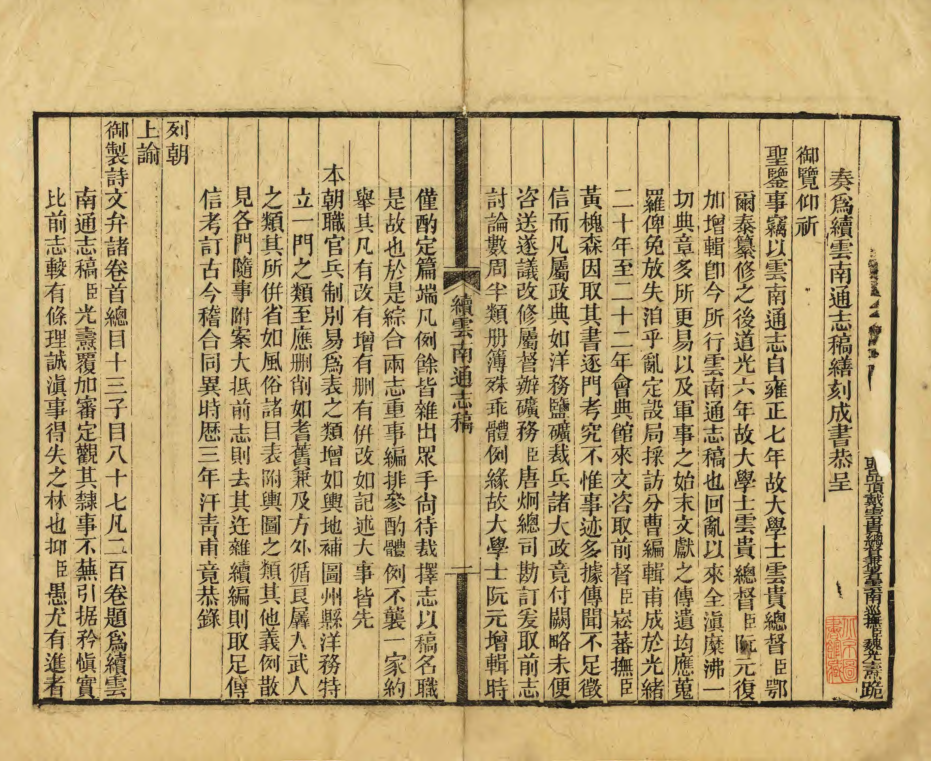 頭品頂戴雲貴總督兼署雲南巡撫臣魏光燾跪
奏爲續雲南通志稿繕刻成書恭呈
御覽仰祈
聖鑒事竊以雲南通志自雍正七年故大學士雲貴總督臣鄂
爾泰纂修之後道光六年故大學士雲貴總督臣阮元復
加增輯卽今所行雲南通志稿也囘亂以來全滇糜沸一
切典章多所更易以及軍事之始末文獻之傳遺均應蒐
羅俾免放失洎乎亂定設局採訪分曹編輯甫成於光緒
二十年至二十二年會典館來文咨取前督臣崧蕃撫臣
黃槐森因取其書逐門考究不惟事迹多據傳聞不足徵
信而凡屬政典如洋務鹽礦裁兵諸大政竟付闕略未便
咨送遂議改修屬督辦礦務臣唐炯總司勘訂爰取前志
討論數周半類册簿殊乖體例緣故大學士阮元增輯時
續雲南通志稿
一
僅酌定篇端凡例餘皆雜出眾手尙待裁擇志以稿名職
是故也於是綜合兩志重事編排參酌體例不襲一家約
舉其凡有改有增有刪有倂改如記述大事皆先
本朝職官兵制別易爲表之類增如輿地補圖州縣洋務特
立一門之類至應刪削如耆舊兼及方外循良羼入武人
之類其所倂省如風俗諸目表附輿圖之類其他義例散
見各門隨事附案大抵前志則去其迕雜續編則取足傳
信考訂古今稽合同異時歷三年汗靑甫竟恭錄
列朝
上諭
御製詩文弁諸卷首總目十三子目八十七凡二百卷題爲續雲
南通志稿臣光燾覆加審定觀其隸事不蕪引据矜愼實
比前志較有條理誠滇事得失之林也抑臣愚尤有進者